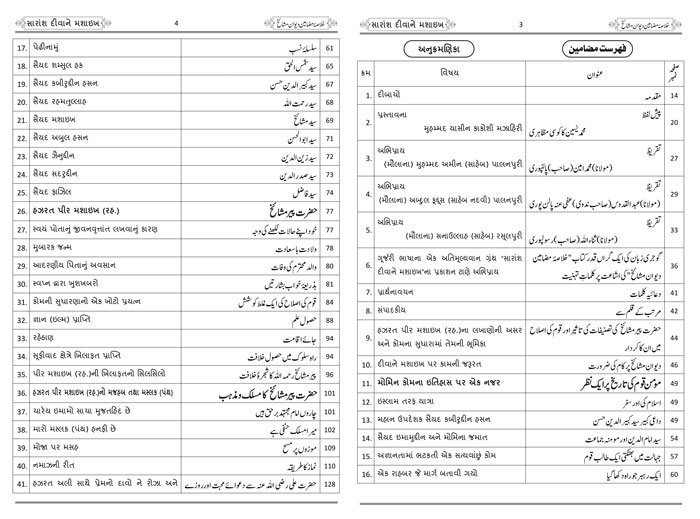 સારાંશ દીવાને મશાઇખ
4
خلاصۂ مضامین دیوانِ مشائخ
17. પેઢીનામું سلسلۂ نسب 61
18. સૈયદ શમ્સુલ હક سید شمس الحق 65
19. સૈયદ કબીરુદ્દીન હસન سید کبیر الدین حسن 67
20. સૈયદ રહમતુલ્લાહ سید رحمت اللہ 70
21. સૈયદ મશાઇખ سید مشائخ 71
22. સૈયદ અબુલ હસન سید ابوالحسن 71
23. સૈયદ ઝૈનુદ્દીન سید زین الدین 72
24. સૈયદ સદરુદ્દીન سید صدر الدین 74
25. સૈયદ ફાઝિલ سید فاضل 74
26. હઝરત પીર મશાઇખ (રહ.) حضرت پیر مشائخ 77
27. સ્વયં પોતાનું જીવનવૃત્તાંત લખવાનું કારણ خود اپنے حالات لکھنے کی وجہ 77
28. મુબારક જન્મ ولادت باسعادت 78
29. આદરણીય પિતાનું અવસાન والد محترم کی وفات 80
30. સ્વપ્ન દ્વારા ખુશખબરો بذریعۂ خواب بشارتیں 81
31. કોમની સુધારણાનો એક ખોટો પ્રયત્ન قوم کی اصلاح کی ایک غلط کوشش 81
32. જ્ઞાન (ઇલ્મ) પ્રાપ્તિ حصول علم 84
33. રહેઠાણ جائے اقامت 94
34. સૂફીવાદ ક્ષેત્રે ખિલાફત પ્રાપ્તિ راہ سلوک میں حصول خلافت 94
35. પીર મશાઇખ (રહ.)ની ખિલાફતનો સિલસિલો پیر مشائخ رحمہ اللہ کا شجرۂ خلافت 95
36. હઝરત પીર મશાઇખ (રહ.)નો મજહબ તથા મસ્લક (પંથ) حضرت پیر مشائخ کا مسلک ومذہب 101
37. ચારેય ઇમામો સાચા મુજતહિદ છે چاروں امام مجتہد برحق ہیں 101
38. મારો મસ્લક (પંથ) હનફી છે میرا مسلک حنفی ہے 102
39. મોજા પર મસહ موزوں پر مسح 109
40. નમાઝની રીત نماز کا طریقہ 110
41. હઝરત અલી સાથે પ્રેમનો દાવો ને રોઝા અને حضرت علی رضی اللہ عنہ سے دعوائے محبت اور روزے 128
સારાંશ દીવાને મશાઇખ
3
خلاصۂ مضامین دیوانِ مشائخ
અનુક્રમણિકા
فہرست مضامین
ક્રમ વિષય عنوان صفحہ نمبر
1. દીબાચો مقدمہ 14
2. પ્રસ્તાવના پیش لفظ 20
મુહમ્મદ યાસીન કાકોશી મઝાહિરી محمد یٰسین کاکوسی مظاہری
3. અભિપ્રાય تقریظ 27
(મૌલાના) મુહમ્મદ અમીન (સાહેબ) પાલનપુરી (مولانا) محمد امین (صاحب) پالنپوری
4. અભિપ્રાય تقریظ 29
(મૌલાના) અબ્દુલ કુદ્દૂસ (સાહેબ નદવી) પાલનપુરી (مولانا) عبد القدوس (صاحب ندوی) عفی عنہ پالن پوری
5. અભિપ્રાય تقریظ 33
(મૌલાના) સનાઉલ્લાહ (સાહેબ) રસૂલપુરી (مولانا) ثناء اللہ (صاحب) رسولپوری
6. ગૂર્જરી ભાષાના એક અતિમૂલ્યવાન ગ્રંથ 'સારાંશ گوجری زبان کی ایک گراں قدر کتاب "خلاصۂ مضامین 36
દીવાને મશાઇખ'ના પ્રકાશન ટાણે અભિપ્રાય دیوان مشائخ" کی اشاعت پر کلمات تہنیت
7. પ્રાર્થનાવચન دعائیہ کلمات 41
8. સંપાદકીય مرتب کے قلم سے 42
9. હઝરત પીર મશાઇખ (રહ.)ના લખાણોની અસર حضرت پیر مشائخ کی تصنیفات کی تاثیر اور قوم کی اصلاح 44
અને કોમના સુધારામાં તેમની ભૂમિકા میں ان کا کردار
10. દીવાને મશાઇખ પર કામની જરૂરત دیوان مشائخ پر کام کی ضرورت 46
11. મોમિન કોમના ઇતિહાસ પર એક નજર مومن قوم کی تاریخ پر ایک نظر 49
12. ઇસ્લામ તરફ યાત્રા اسلام کی اور سفر 49
13. મહાન ઉપદેશક સૈયદ કબીરુદ્દીન હસન داعی کبیر سید کبیر الدین حسن 49
14. સૈયદ ઇમામુદ્દીન અને મોમિના જમાત سید امام الدین اور مومنہ جماعت 54
15. અજ્ઞાનતામાં ભટકતી એક સત્યવાંછું કોમ جہالت میں بھٹکتی ایک طالب قوم 57
16. એક રાહબર જે માર્ગ બતાવી ગયો ایک رہبر جو راہ دکھا گیا 60